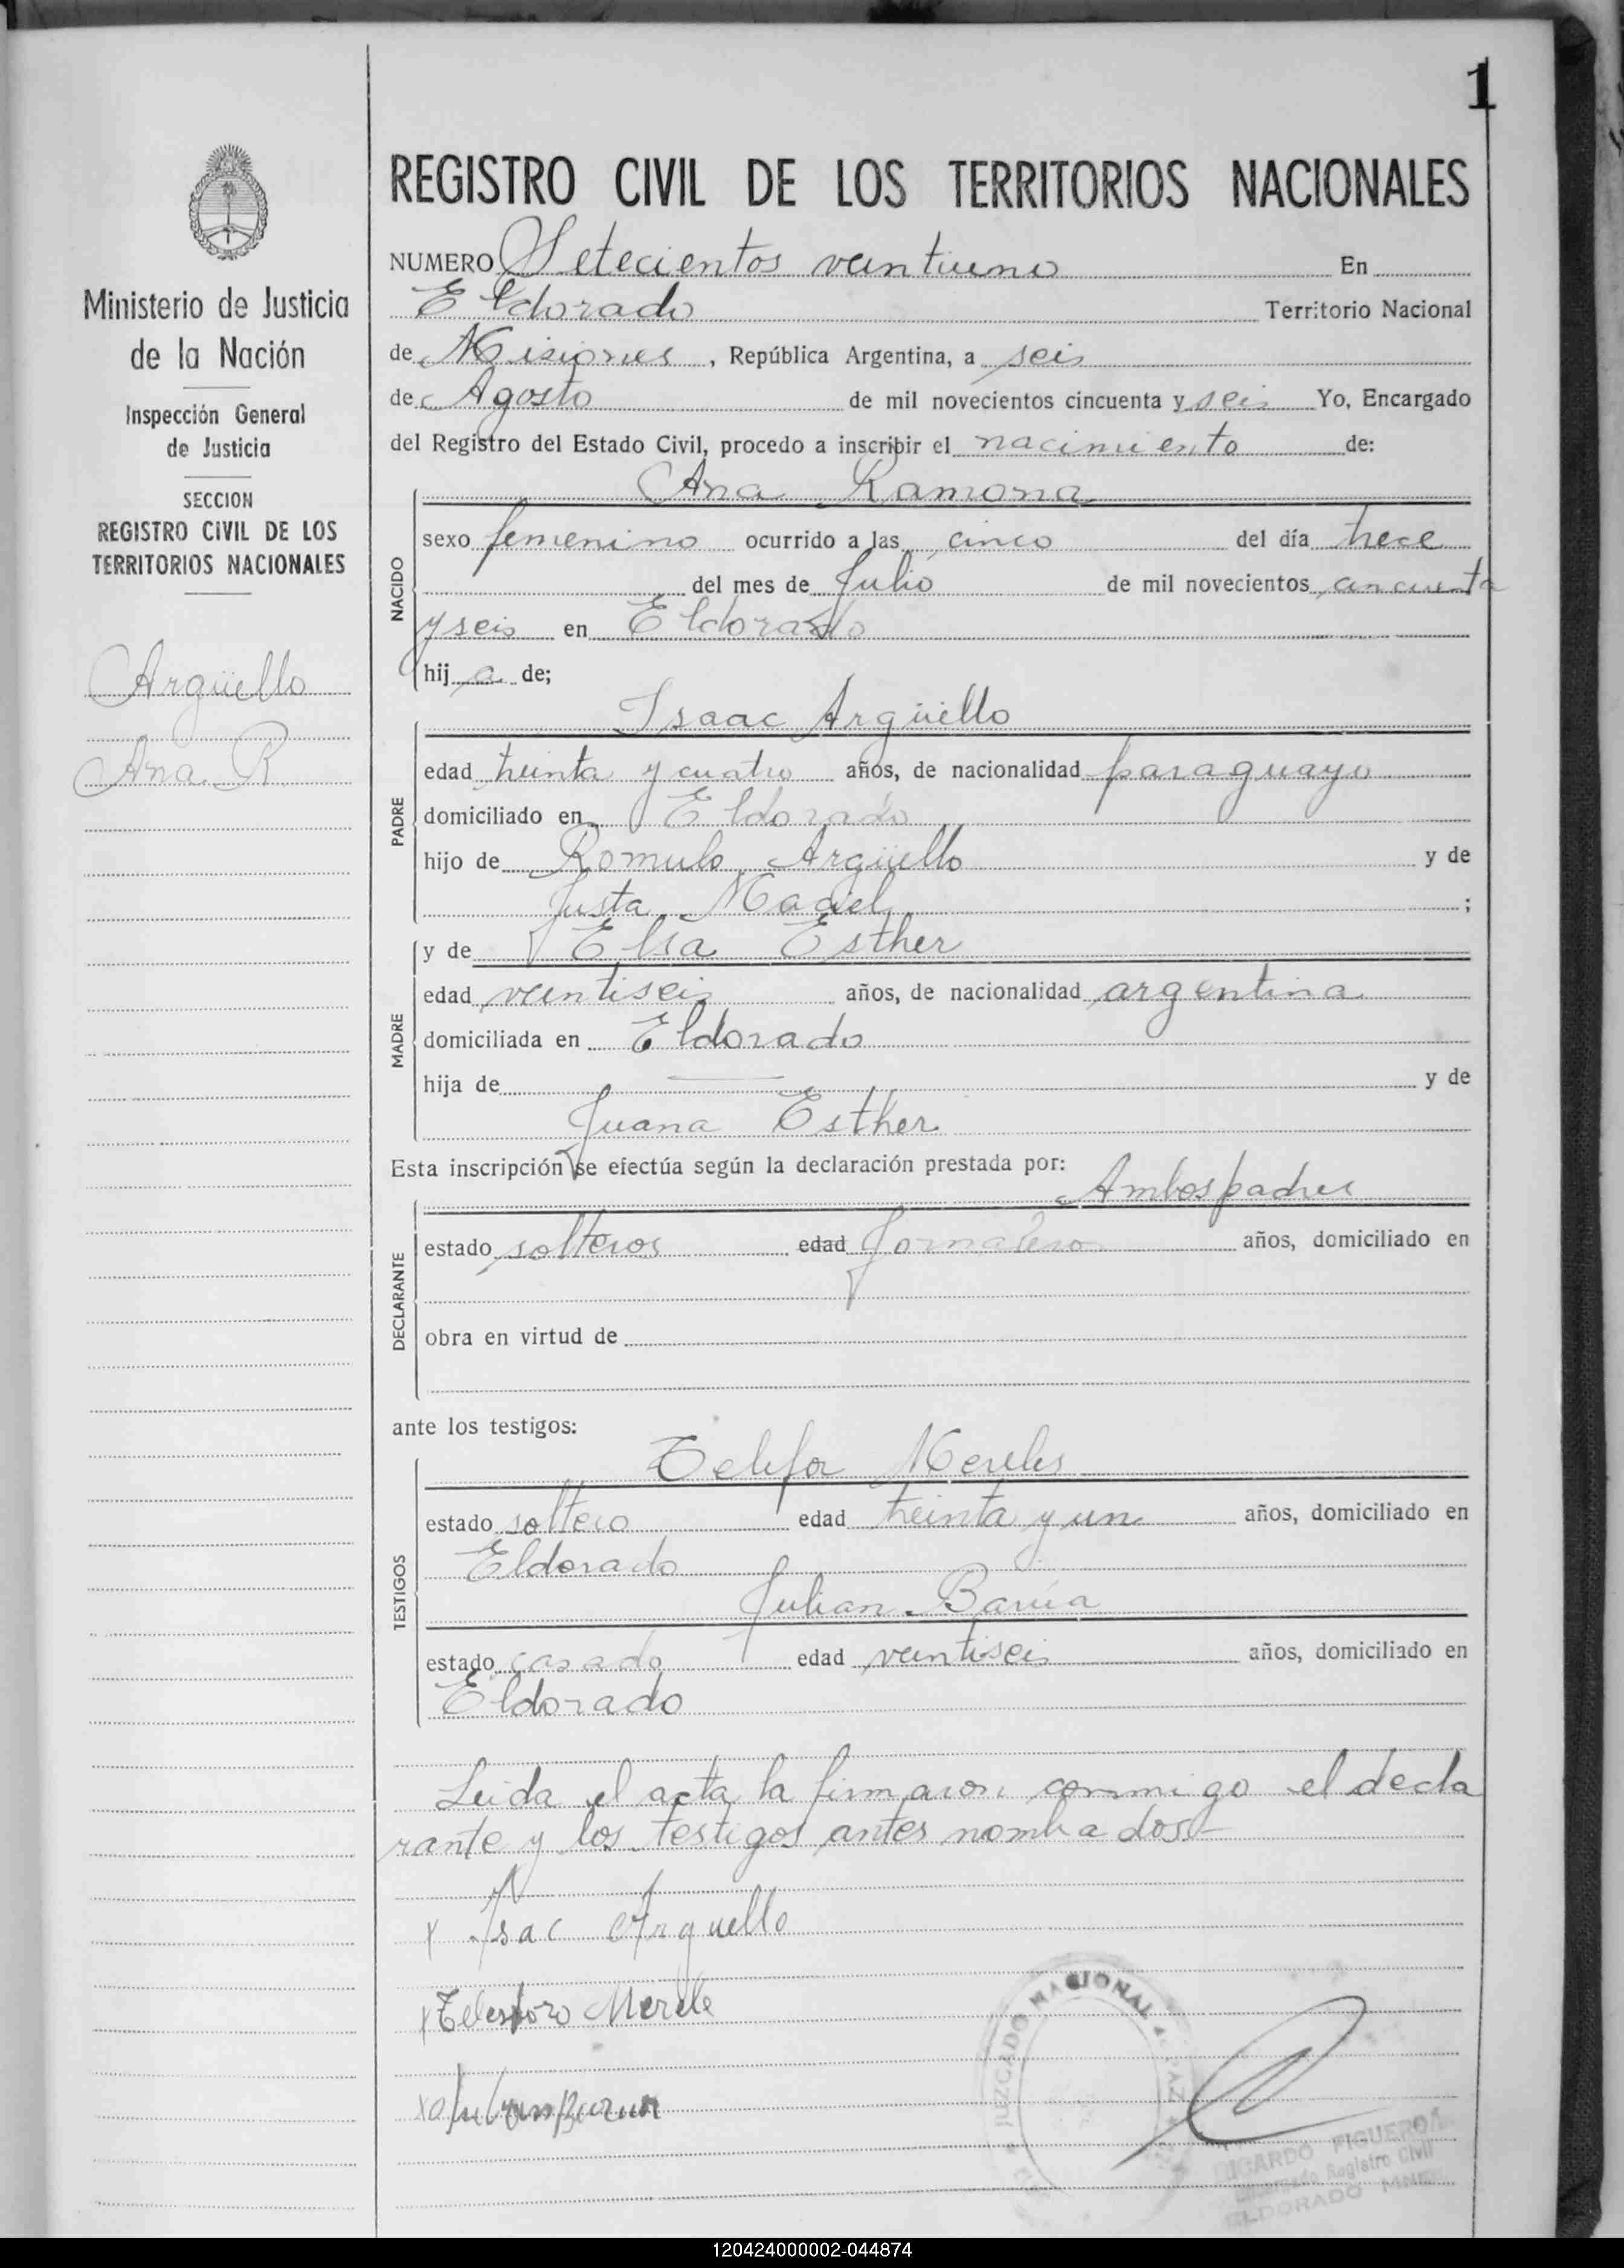 1
Ministerio de Justicia
de la Nación
Inspección General
de Justicia
SECCION
REGISTRO CIVIL DE LOS
TERRITORIOS NACIONALES
Argüello
Ana R
REGISTRO CIVIL DE LOS TERRITORIOS NACIONALES
NUMERO Setecientos veintiuno En
Eldorado Territorio Nacional
de Misiones, República Argentina, a seis
de Agosto de mil novecientos cincuenta y seis Yo, Encargado
del Registro del Estado Civil, procedo a inscribir el nacimiento de:
Ana Ramona
NACIDO
sexo femenino ocurrido a las cinco del día trece
del mes de Julio de mil novecientos cincuenta
y seis en Eldorado
hij a de;
Isaac Argüello
PADRE
edad treinta y cuatro años, de nacionalidad paraguayo
domiciliado en Eldorado
hijo de Romulo Argüello y de
Justa Maciel ;
MADRE
y de Elsa Esther
edad veintiseis años, de nacionalidad argentina
domiciliada en Eldorado
hija de — y de
Juana Esther
Esta inscripción se efectúa según la declaración prestada por:
Ambos padres
DECLARANTE
estado solteros edad Jornalero años, domiciliado en
obra en virtud de
ante los testigos:
TESTIGOS
Telefor Mereles
estado soltero edad treinta y un años, domiciliado en
Eldorado
Julian Barúa
estado casado edad veintiseis años, domiciliado en
Eldorado
Leida el acta la firmaron conmigo el decla
rante y los testigos antes nombrados-
x Isac Arguello
x Telesforo Merele
JUZGADO NACIONAL DE PAZ
RICARDO FIGUEROA
Encargado Registro Civil
ELDORADO MNES
120424000002-044874